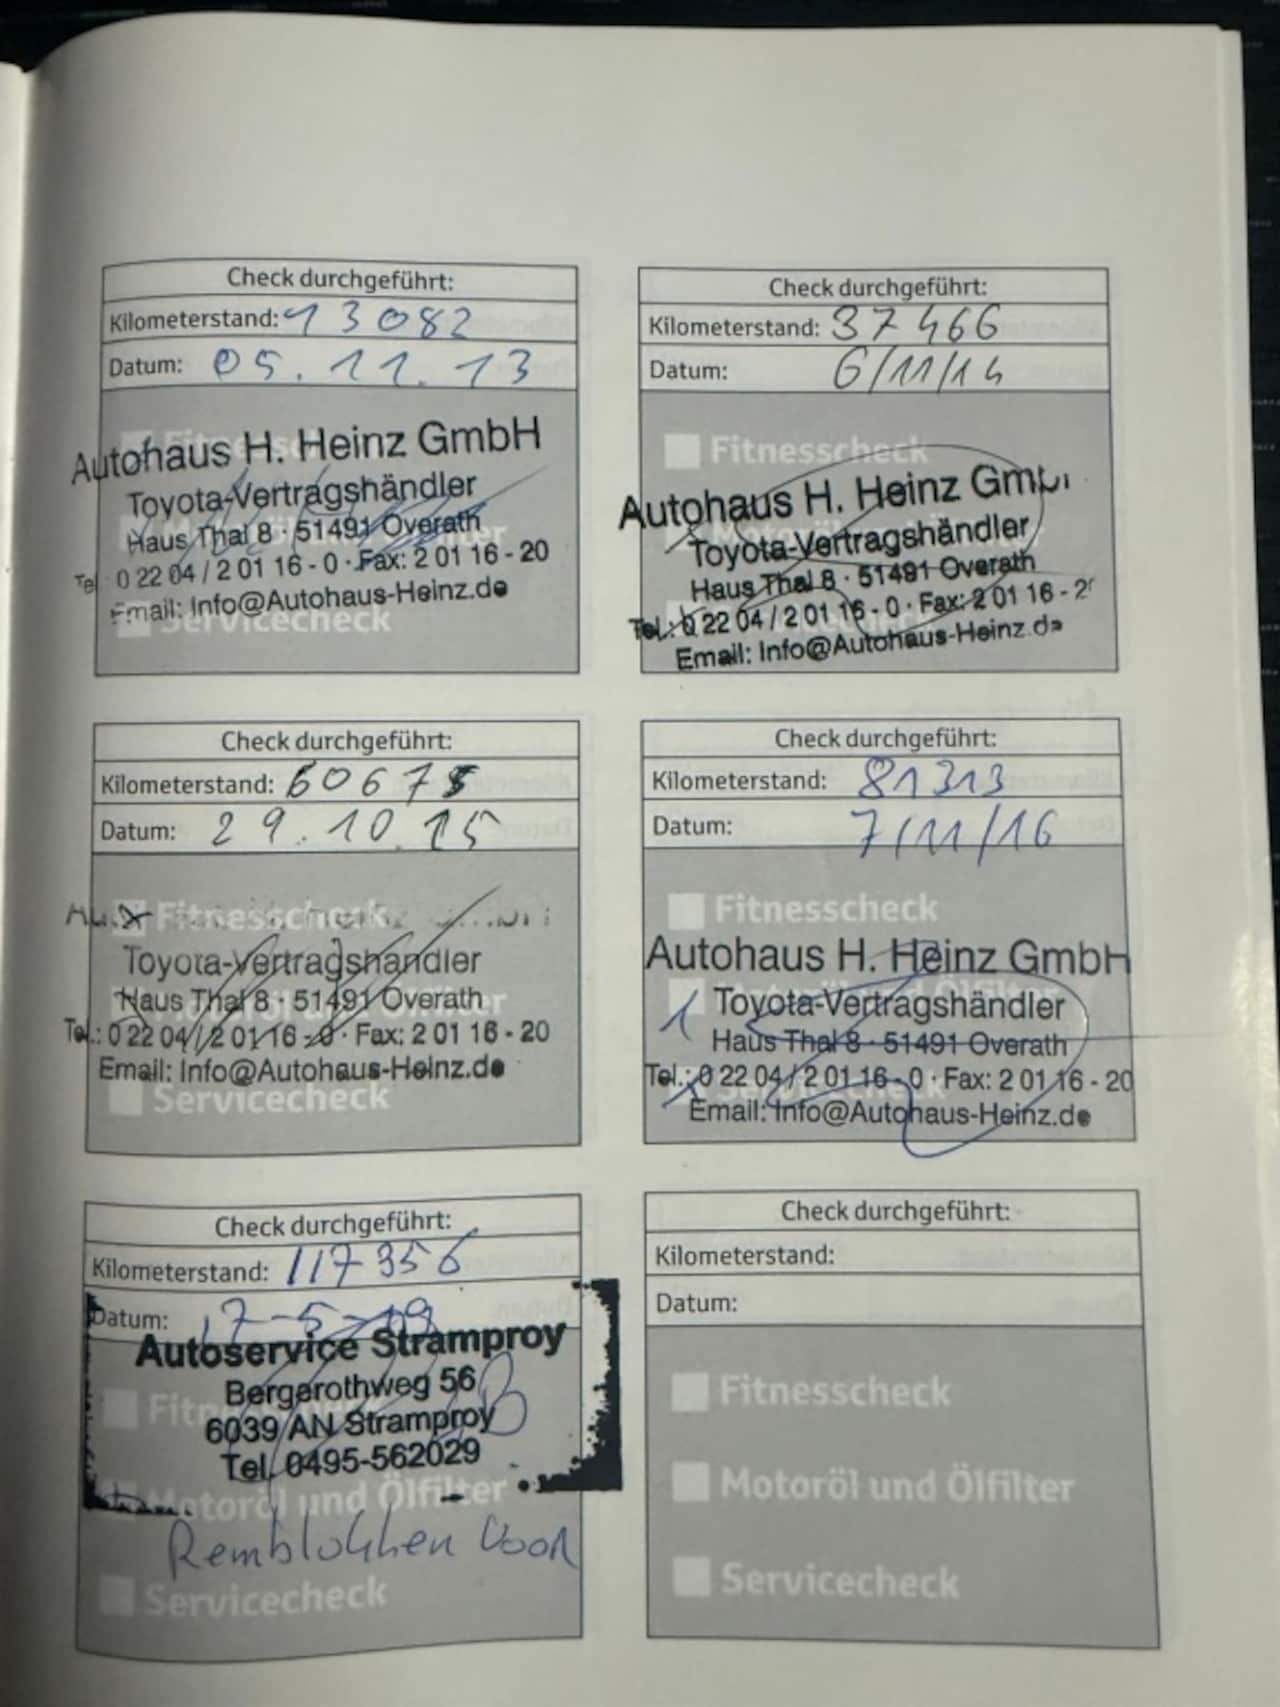 Check durchgeführt:
Kilometerstand: 13082
Datum: 05.11.13
Autohaus H. Heinz GmbH
Toyota-Vertragshändler
Haus Thal 8 · 51491 Overath
Tel.: 0 22 04 / 2 01 16 - 0 · Fax: 2 01 16 - 20
Email: Info@Autohaus-Heinz.de
Servicecheck
Check durchgeführt:
Kilometerstand: 37466
Datum: 6/11/14
Fitnesscheck
Autohaus H. Heinz GmbH
Toyota-Vertragshändler
Haus Thal 8 · 51491 Overath
Tel.: 0 22 04 / 2 01 16 - 0 · Fax: 2 01 16 - 2
Email: Info@Autohaus-Heinz.de
Check durchgeführt:
Kilometerstand: 60675
Datum: 29.10.15
Fitnesscheck
Toyota-Vertragshändler
Haus Thal 8 · 51491 Overath
Tel.: 0 22 04 / 2 01 16 - 0 · Fax: 2 01 16 - 20
Email: Info@Autohaus-Heinz.de
Servicecheck
Check durchgeführt:
Kilometerstand: 81313
Datum: 7/11/16
Fitnesscheck
Autohaus H. Heinz GmbH
Toyota-Vertragshändler
Haus Thal 8 · 51491 Overath
Tel.: 0 22 04 / 2 01 16 - 0 · Fax: 2 01 16 - 20
Email: Info@Autohaus-Heinz.de
Check durchgeführt:
Kilometerstand: 117356
Datum: 17-5-19
Autoservice Stramproy
Bergerothweg 56
6039 AN Stramproy
Tel. 0495-562029
Motoröl und Ölfilter
Remblokken voor
Servicecheck
Check durchgeführt:
Kilometerstand:
Datum:
Fitnesscheck
Motoröl und Ölfilter
Servicecheck